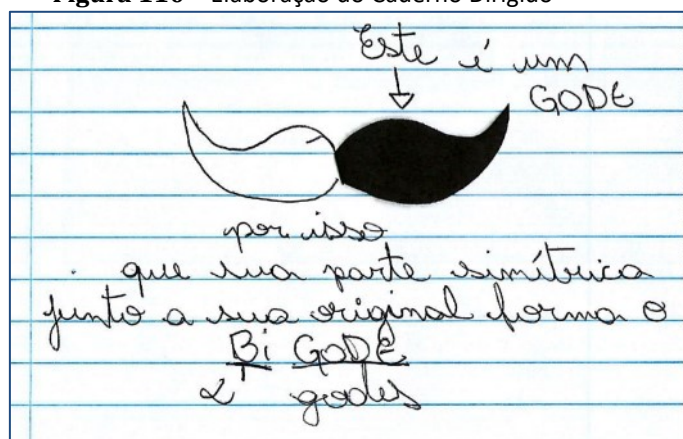 Elaboração do Caderno Dirigido
Este é um
GODE
por isso
que sua parte simítrica
junto a sua original forma o
Bi GODE
2 godes